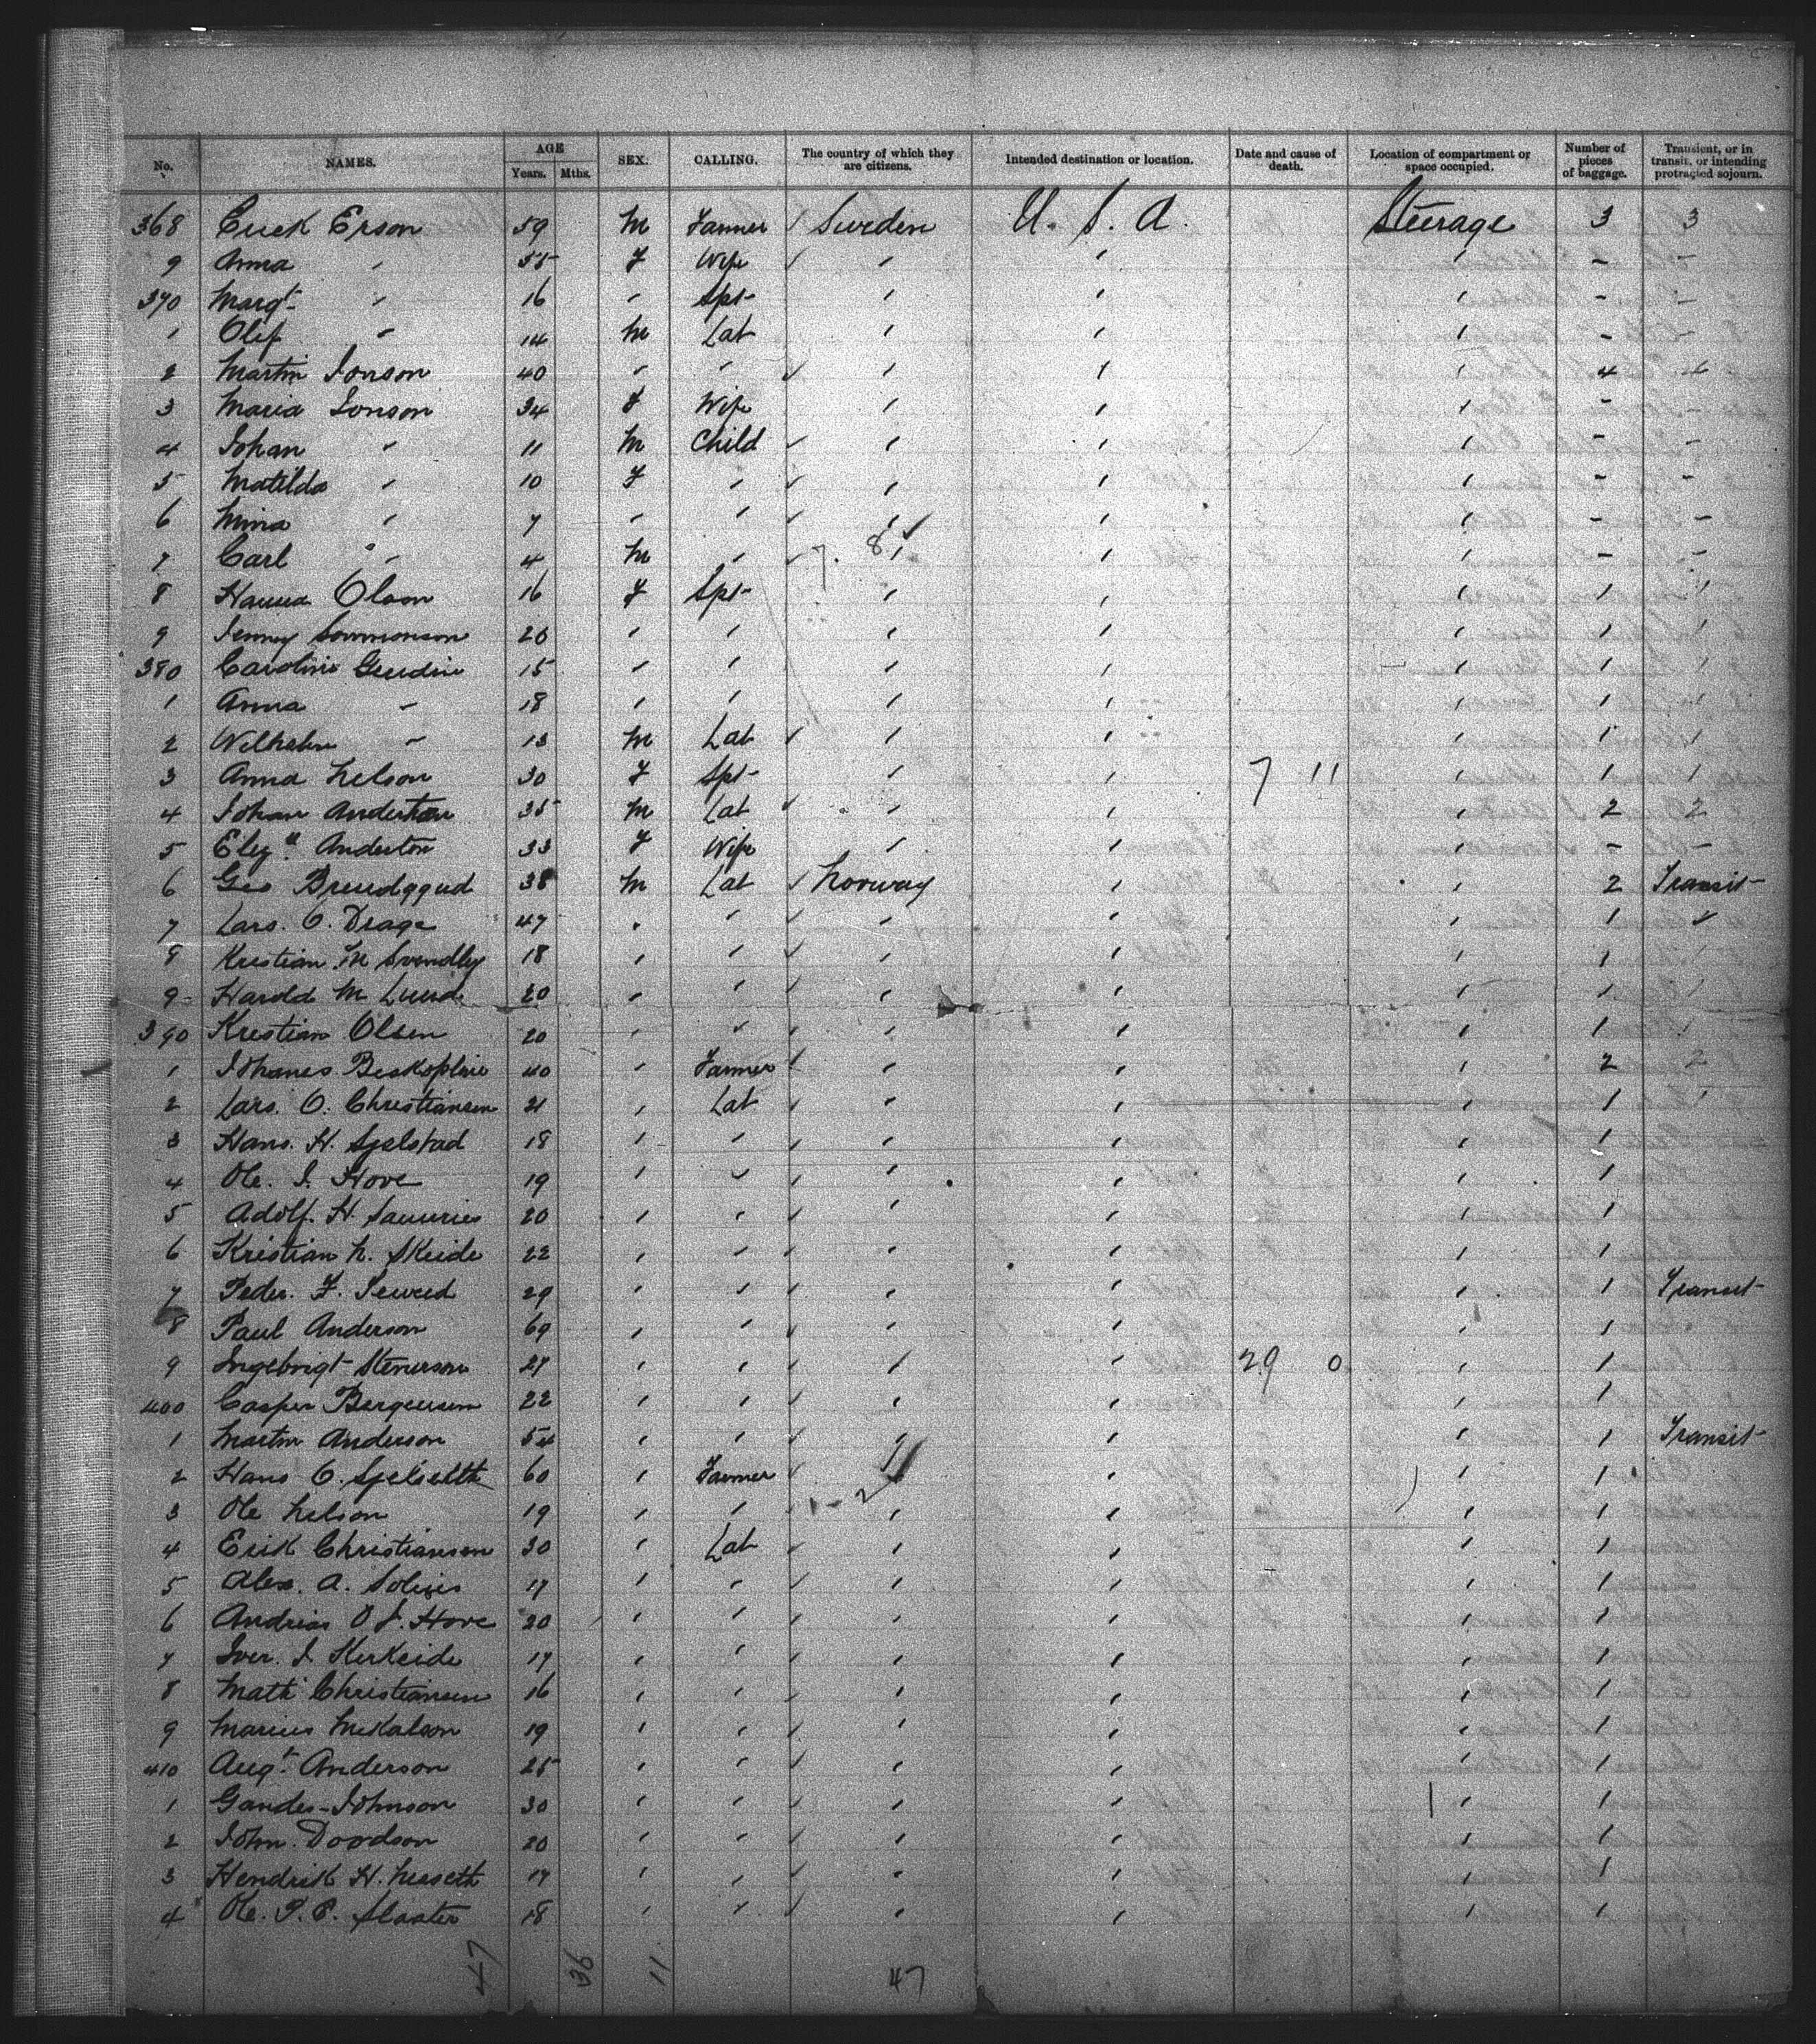 No. NAMES. AGE Years. Mths. SEX. CALLING. The country of which they are citizens. Intended destination or location. Date and cause of death. Location of compartment or space occupied. Number of pieces of baggage. Transient, or in transit, or intending protracted sojourn.
368 Erick Erson 59 M Farmer Sweden U. S. A. Steerage 3 3
9 Anna " 55 F Wife " " " - -
370 Margt " 16 " Spt " " " - -
1 Olef " 14 M Lab " " " - -
2 Martin Jonson 40 " " " " " 4 4
3 Maria Jonson 34 F Wife " " " - -
4 Johan " 11 M Child " " " - -
5 Matilda " 10 F " " " " - -
6 Mina " 7 " " " " " - -
7 Carl " 4 M " 7. 8 " " " - -
8 Hanna Olson 16 F Spt " " " 1 1
9 Jenny Sommonson 20 " " " " " 1 1
380 Caroline 15 " " " " " 1 1
1 Anna " 18 " " " " " 1 1
2 Wilhelm " 13 M Lab " " " 1 1
3 Anna Nelson 30 F Spt " " 7 11 " 1 1
4 Johan Anderton 35 M Lab " " " 2 2
5 Anderton 33 F Wife " " " - -
6 Geo 38 M Lab Norway " " 2 Transit
7 Lars. O. Drage 47 " " " " " 1 "
8 Kristian. M 18 " " " " " 1 "
9 Harold M Lund 20 " " " " " 1 "
390 Kristian Olsen 20 " " " " " 1 "
1 Johanes 40 " Farmer " " " 2 2
2 Lars. O. Christiansen 21 " Lab " " " 1 "
3 Hans. H. Sjelstad 18 " " " " " 1
4 Ole. J. Hove 19 " " " " " 1
5 Adolf. H. 20 " " " " " 1
6 Kristian N. Skeide 22 " " " " " 1
7 Peder. F. 29 " " " " " 1 Transit
8 Paul Anderson 69 " " " " " 1
9 Ingebrigt Stenerson 27 " " " " 29 0 " 1
400 Casper Bergensen 22 " " " " " 1
1 Martin Anderson 54 " " " " " 1 Transit
2 Hans O. 60 " Farmer " " " 1
3 Ole Nelson 19 " " 1 - 2 " " " 1
4 Erik Christiansen 30 " Lab " " " 1
5 Alex. A. 17 " " " " " 1
6 Andrias O J. Hove 20 " " " " " 1
7 Iver. J Kerkeide 17 " " " " " 1
8 Math Christiansen 16 " " " " " 1
9 Marius Mekalson 19 " " " " " 1
410 Augt. Anderson 25 " " " " " 1
1 Gandes-Johnson 30 " " " " " 1
2 John. Doodson 20 " " " " " 1
3 Hendrik H. Neseth 17 " " " " " 1
4 Ole. P. P. Slaater 18 " " " " " 1
47 36 11 47